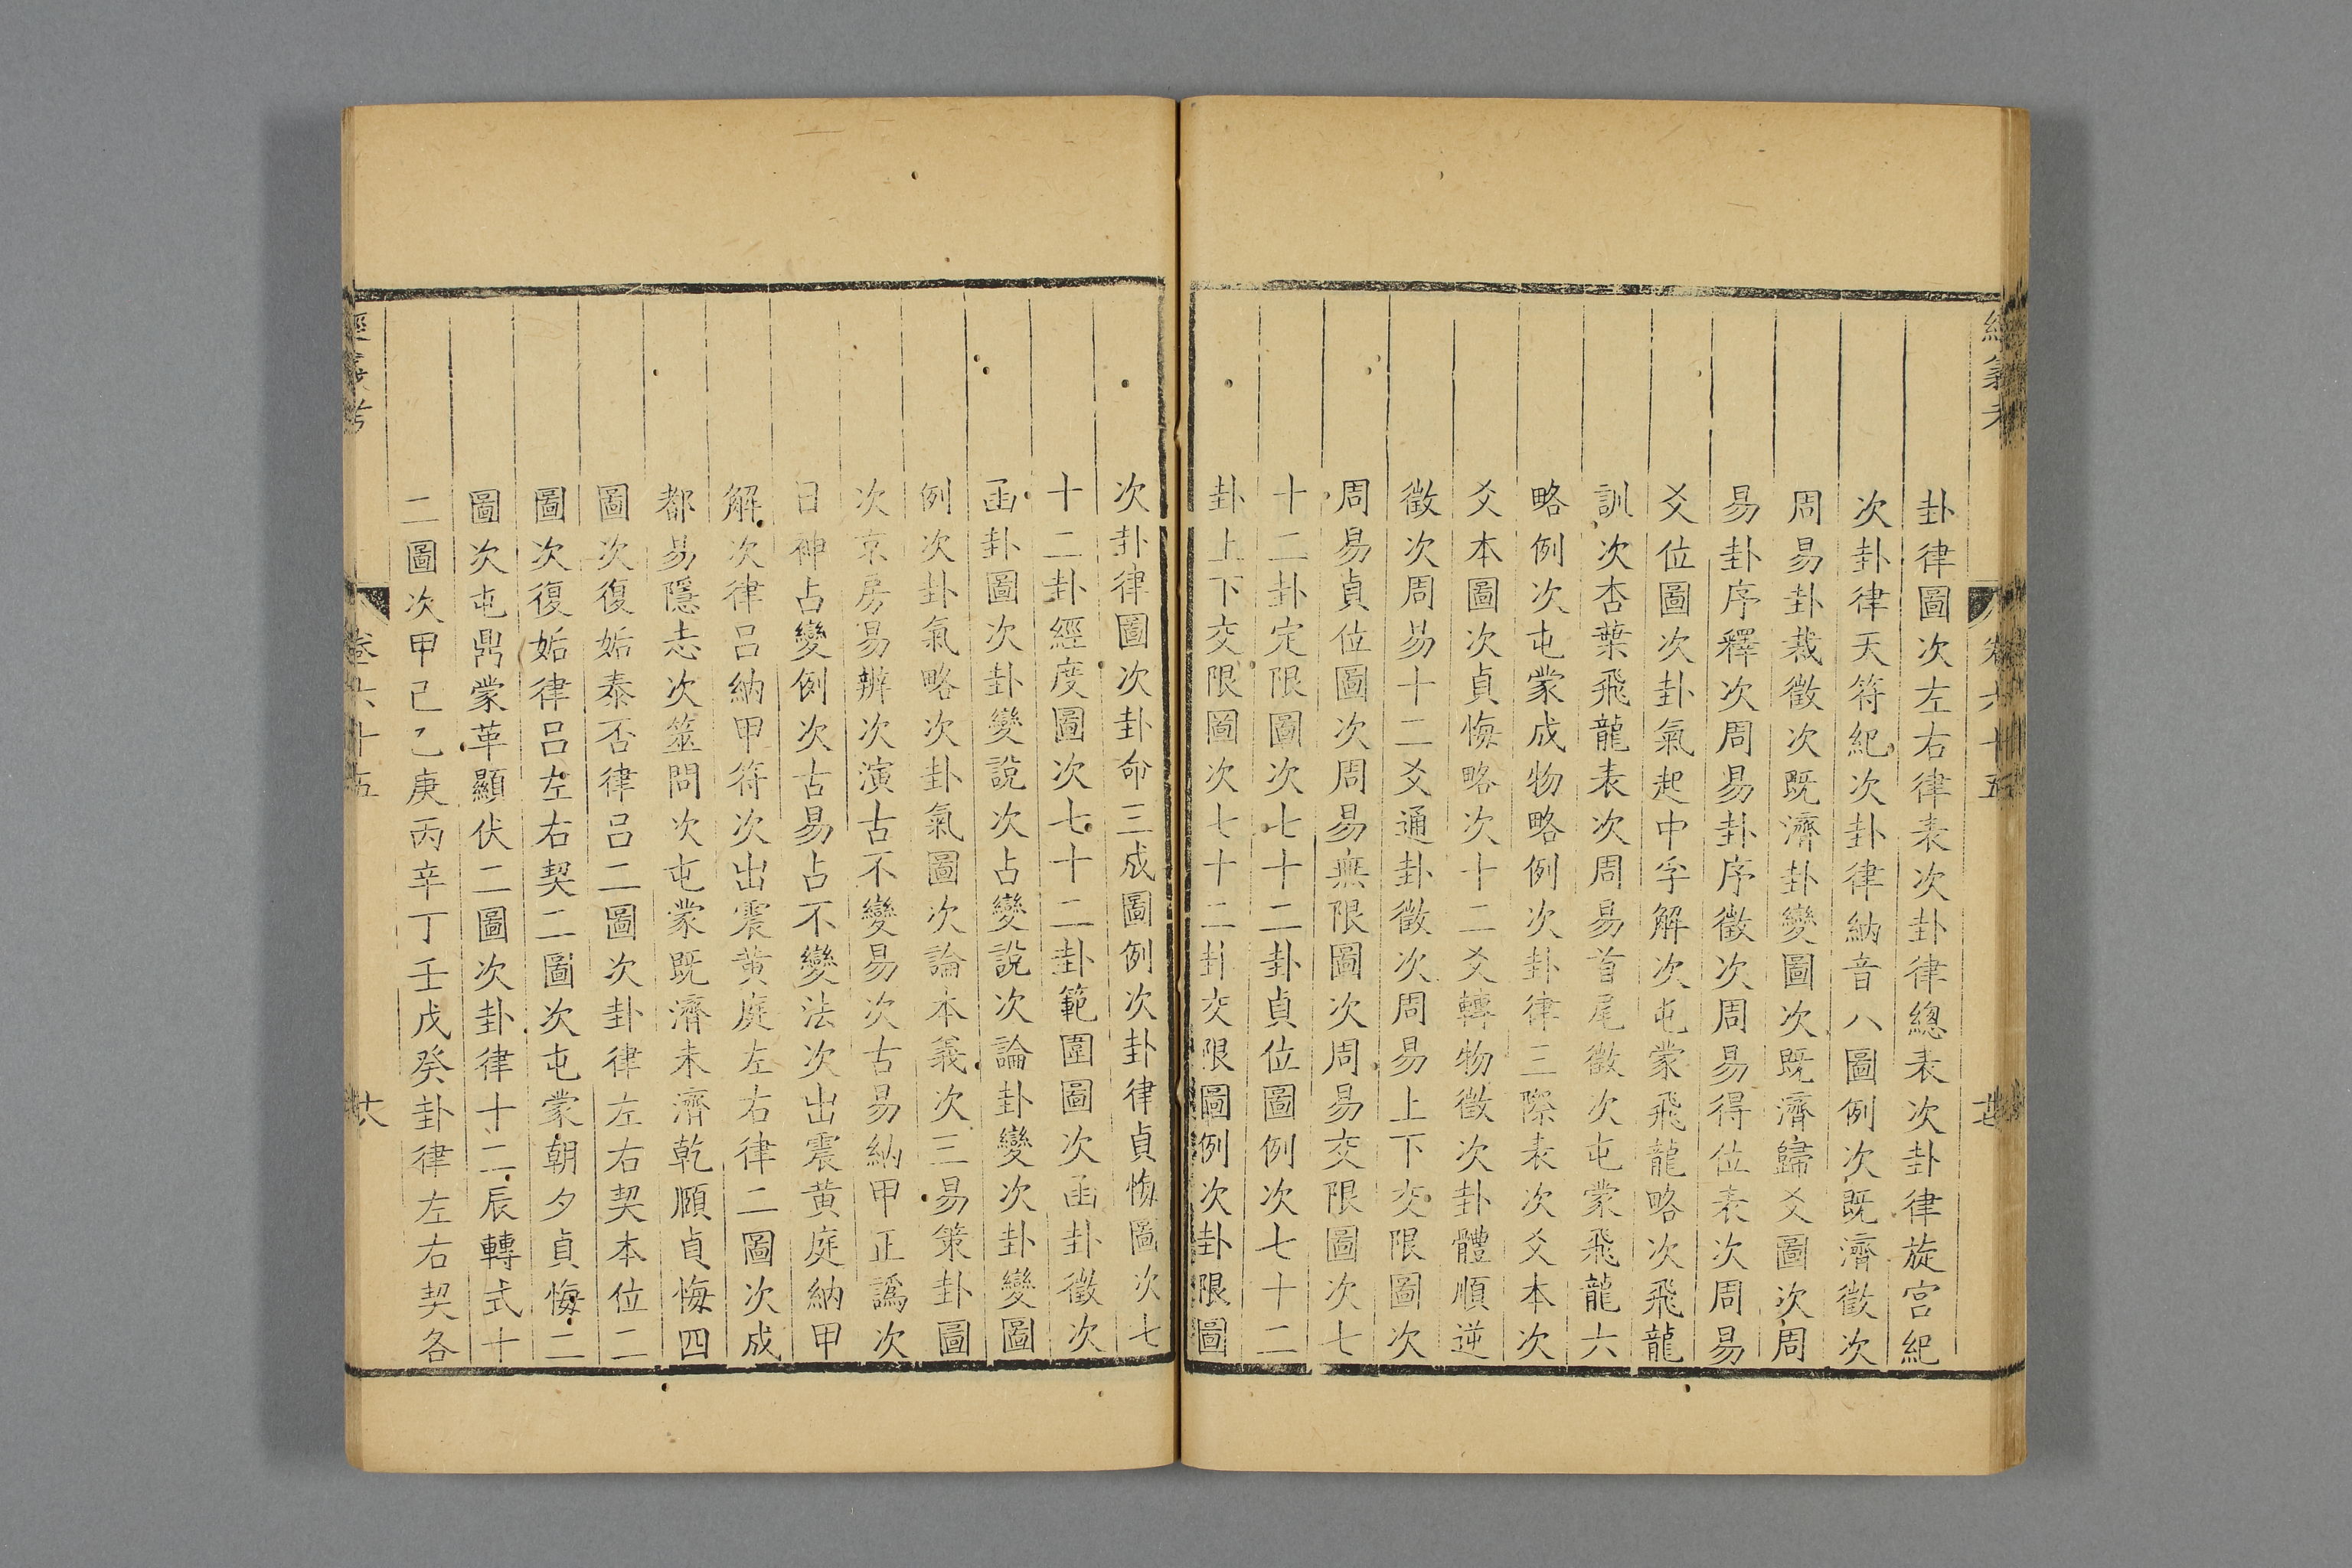 卦律圖次左右律表次卦律總表次卦律旋宮紀
次卦律天符紀次卦律納音八圖例次既濟徵次
周易卦裁徵次既濟卦變圖次既濟歸爻圖次周
易卦序釋次周易卦序徵次周易得位表次周易
爻位圖次卦氣起中孚解次屯蒙飛龍略次飛龍
訓次杏葉飛龍表次周易首尾徵次屯蒙飛龍六
略例次屯蒙成物略例次卦律三際表次爻本次
爻本圖次貞悔略次十二爻轉物徵次卦體順逆
徵次周易十二爻通卦徵次周易上下交限圖次
周易貞位圖次周易無限圖次周易交限圖次七
十二卦定限圖次七十二卦貞位圖例次七十二
卦上下交限圖次七十二卦交限圖例次卦限圖
次卦律圖次卦命三成圖例次卦律貞悔圖次七
十二卦經度圖次七十二卦範圍圖次函卦徵次
函卦圖次卦變說次占變說次論卦變次卦變圖
例次卦氣略次卦氣圖次論本義次三易策卦圖
次京房易辨次演古不變易次古易納甲正譌次
日神占變例次古易占不變法次出震黃庭納甲
解次律呂納甲符次出震黃庭左右律二圖次成
都易隱志次筮問次屯蒙既濟未濟乾頤貞悔四
圖次復姤泰否律呂二圖次卦律左右契本位二
圖次復姤律呂左右契二圖次屯蒙朝夕貞悔二
圖次屯鼎蒙革顯伏二圖次卦律十二辰轉式十
二圖次甲己乙庚丙辛丁壬戊癸卦律左右契各
經義考
卷六十五
廿六